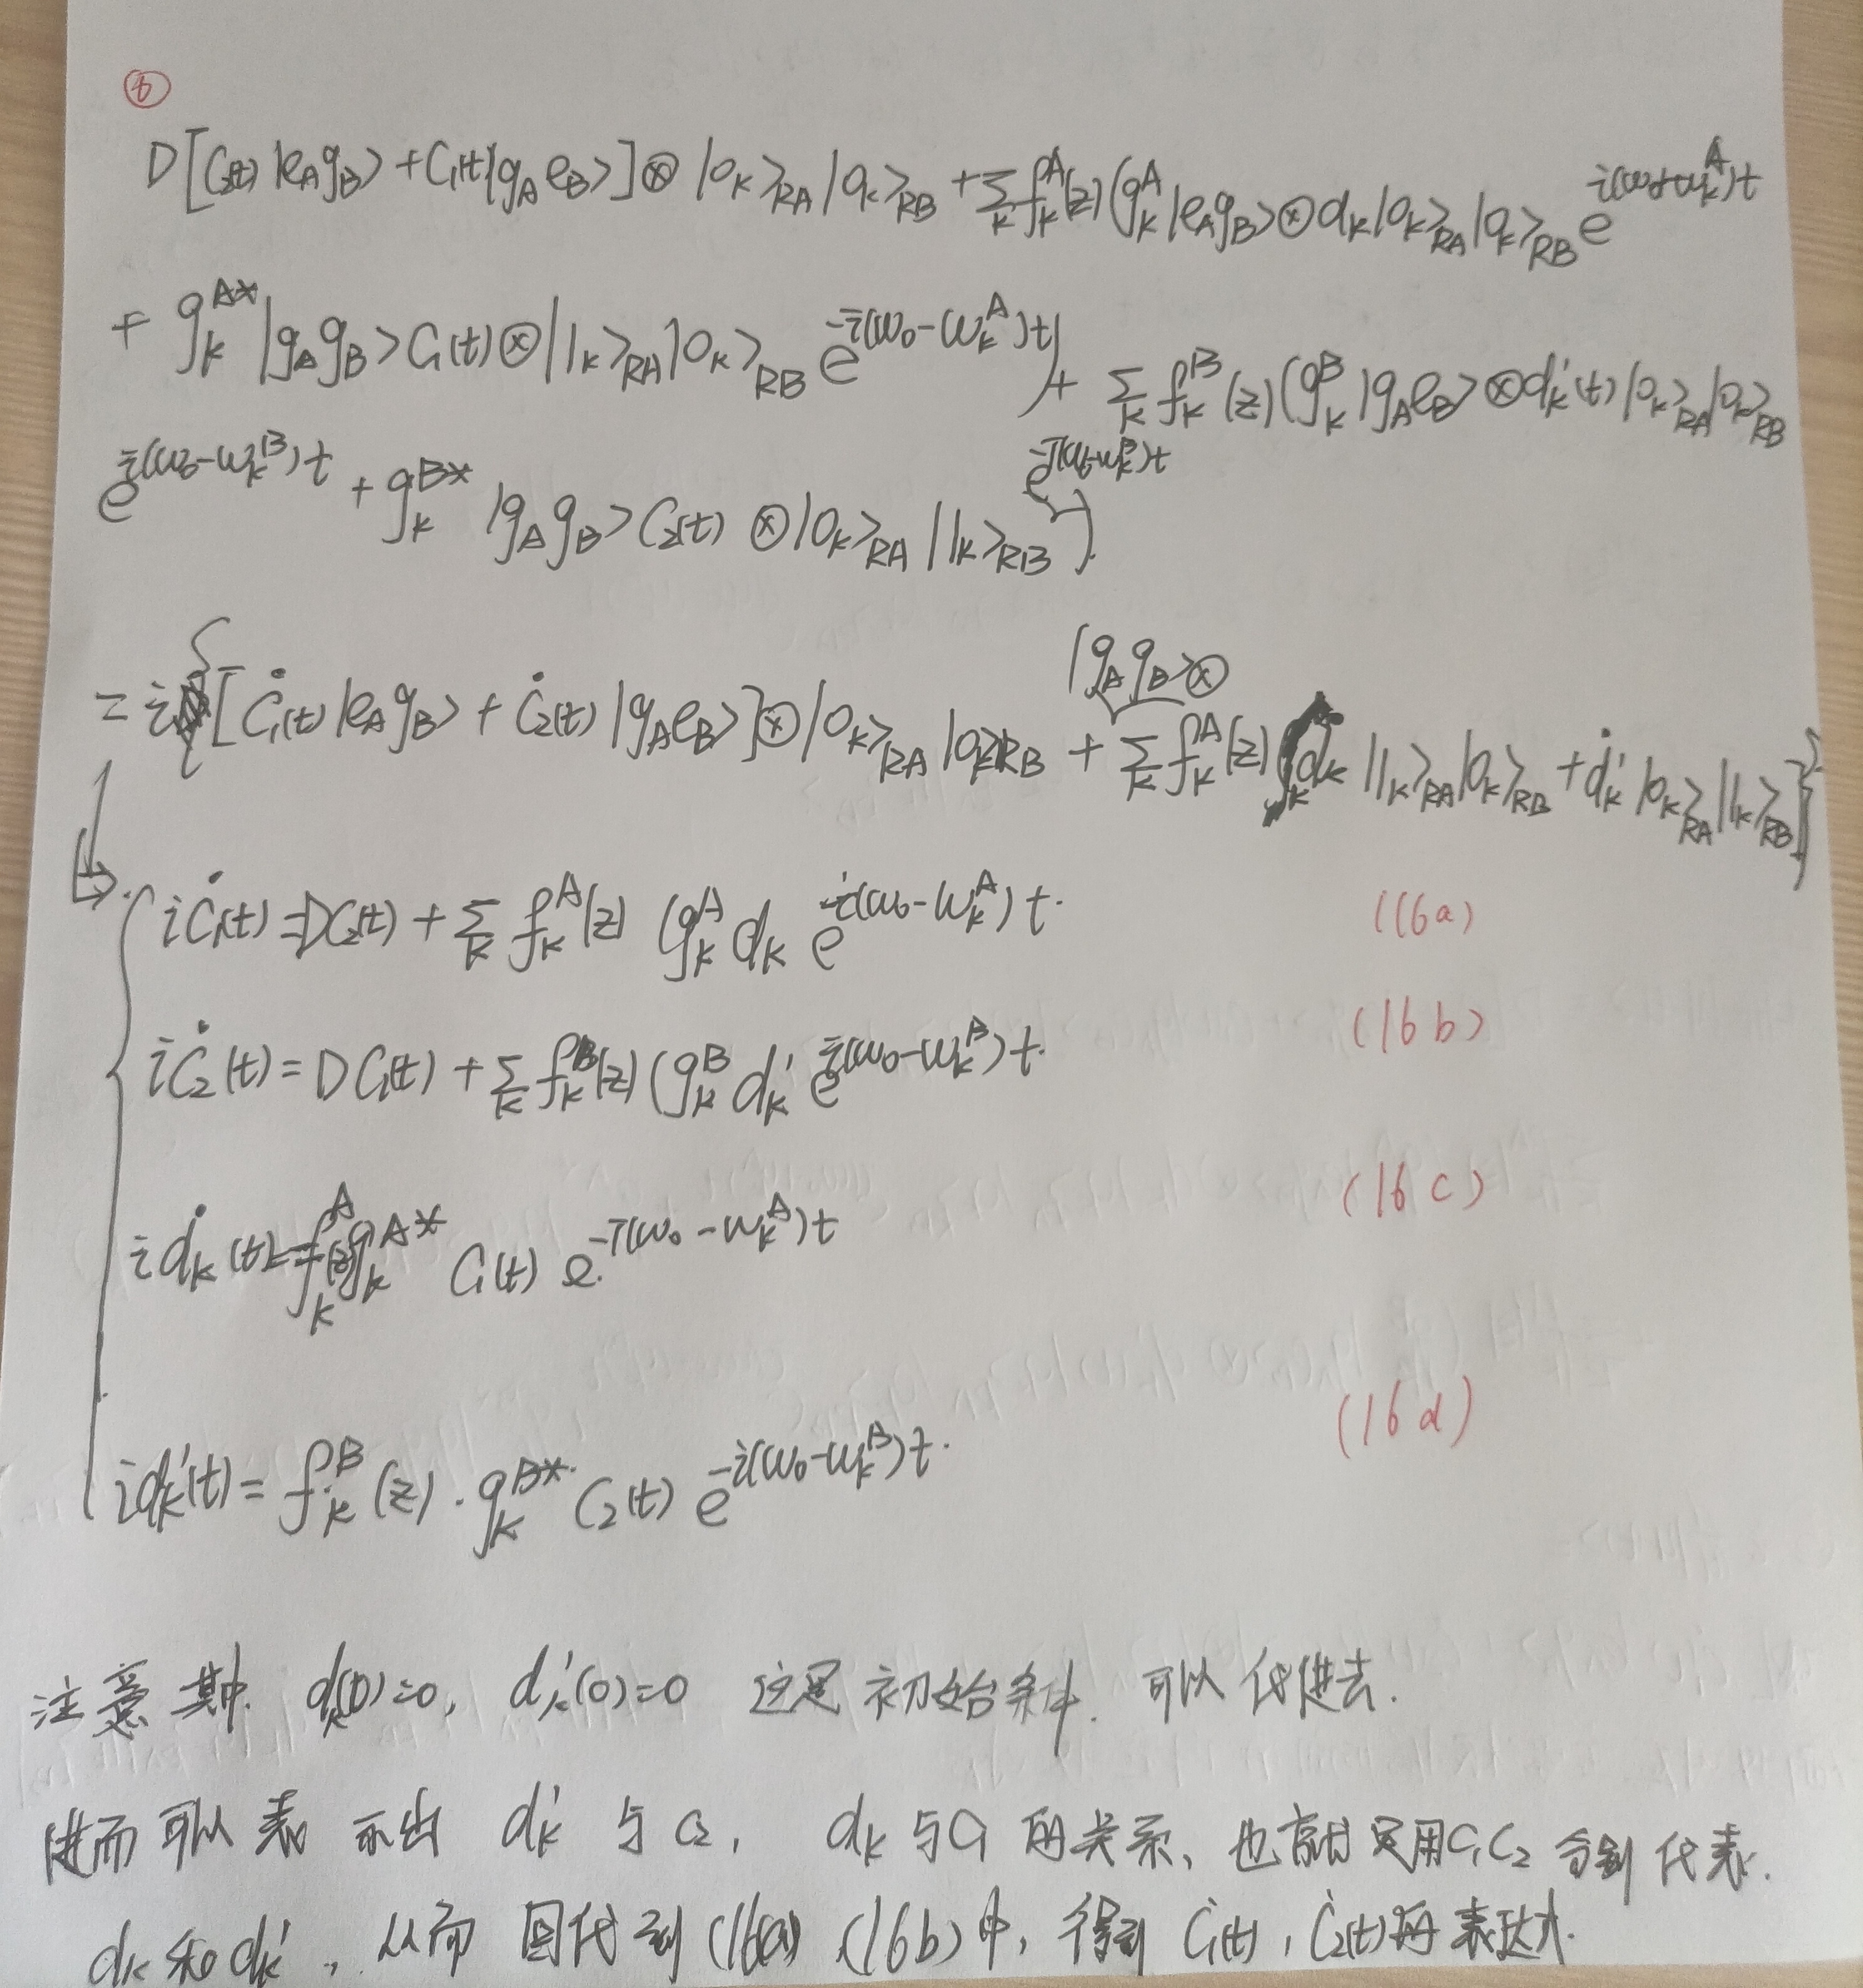 ⑥
D[C₂(t)|e_A g_B> + C₁(t)|g_A e_B>] ⊗ |0_k>_RA |0_k>_RB + Σ_k f_k^A(z)(g_k^A |e_A g_B> ⊗ d_k |0_k>_RA |0_k>_RB e^{i(ω₀-ω_k^A)t}
+ g_k^{A*} |g_A g_B> C₁(t) ⊗ |1_k>_RA |0_k>_RB e^{-i(ω₀-ω_k^A)t}) + Σ_k f_k^B(z)(g_k^B |g_A e_B> ⊗ d_k'(t) |0_k>_RA |0_k>_RB
e^{i(ω₀-ω_k^B)t} + g_k^{B*} |g_A g_B> C₂(t) ⊗ |0_k>_RA |1_k>_RB e^{-i(ω₀-ω_k^B)t}).
= i{[Ċ₁(t)|e_A g_B> + Ċ₂(t)|g_A e_B>] ⊗ |0_k>_RA |0_k>_RB + |g_A g_B> ⊗ Σ_k f_k^A(z)(ḋ_k |1_k>_RA |0_k>_RB + ḋ_k' |0_k>_RA |1_k>_RB)}
iĊ₁(t) = DC₂(t) + Σ_k f_k^A(z) (g_k^A d_k e^{i(ω₀-ω_k^A)t}. (16a)
iĊ₂(t) = DC₁(t) + Σ_k f_k^B(z) (g_k^B d_k' e^{i(ω₀-ω_k^B)t}. (16b)
iḋ_k(t) = f_k^A(z) g_k^{A*} C₁(t) e^{-i(ω₀-ω_k^A)t} (16c)
id_k'(t) = f_k^B(z) · g_k^{B*} C₂(t) e^{-i(ω₀-ω_k^B)t}. (16d)
注意 其中. d_k(0)=0, d_k'(0)=0 这是 初始条件. 可以 代进去.
进而 可以 表 示出 d_k' 与 C₂, d_k 与 C₁ 的关系、也就是用C₁C₂ 分别 代表.
d_k 和 d_k', 从而 回代 到 (16a) (16b) 中, 得到 Ċ₁(t), Ċ₂(t)的 表达式.